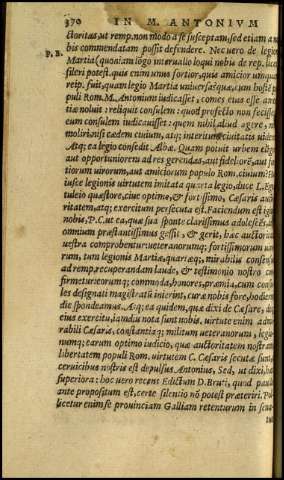 370 IN M. ANTONIVM
ctoritas, ut remp. non modo à se susceptam, sed etiam a no
bis commendatam possit defendere. Nec uero de legione
P. B. Martia (quo iam longo interuallo loqui nobis de rep.
sileri potest. quis enim unus fortior, quis amicior unquam
reip. fuit, quam legio Martia uniuersa? quæ, cum hostem
puli Rom. M. Antonium iudicasset, comes eius esse amen
tiæ noluit: reliquit consulem: quod profecto non fecisset,
eum consulem iudicasset: quem nihil aliud agere, nihil
moliri, nisi cædem ciuium, atq; interitum ciuitatis uideret.
Atq; ea legio consedit Albæ. Quam potuit urbem eligere
aut opportuniorem ad res gerendas, aut fideliorē, aut for
tiorum uirorum, aut amiciorum populo Rom. ciuium: Hu
iusce legionis uirtutem imitata quarta legio, duce L. Egna
tuleio quæstore, ciue optimo, & fortissimo, Cæsaris aucto
ritatem, atq; exercitum persecuta est. Faciendum est igitur
nobis, P. C. ut ea, quæ sua sponte clarissimus adolescēs, atq;
omnium præstantissimus gessit, & gerit, hæc auctoritate
uestra comprobentur: ueteranorumq; fortissimorum uiro
rum, tum legionis Martiæ, quartæq; mirabilis consensus
ad remp. recuperandam laude, & testimonio nostro con
firmetur: eorumq; commoda, honores, præmia, cum consu
les designati magistratū inierint, curæ nobis fore, hodierno
die spondeamus. Atq; ea quidem, quæ dixi de Cæsare, deq;
eius exercitu, iandiu nota sunt nobis. uirtute enim admi
rabili Cæsaris, constantiaq; militum ueteranorum, legio
numq; earum optimo iudicio, quæ auctoritatem nostram,
libertatem populi Rom. uirtutem C. Cæsaris secutæ sunt,
ceruicibus nostris est depulsus Antonius. Sed, ut dixi, hæc
superiora: hoc uero recens Edictum D. Bruti, quod paulo
ante propositum est, certe silentio nō potest præteriri. Pol
licetur enim se prouinciam Galliam retenturum in sena